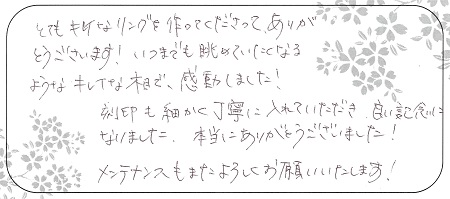 とてもキレイなリングを作ってくださって、ありが
とうございます！いつまでも眺めていたくなる
ようなキレイな木目で、感動しました！
刻印も細かく丁寧に入れていただき、良い記念に
なりました。本当にありがとうございました！
メンテナンスもまたよろしくお願いいたします！